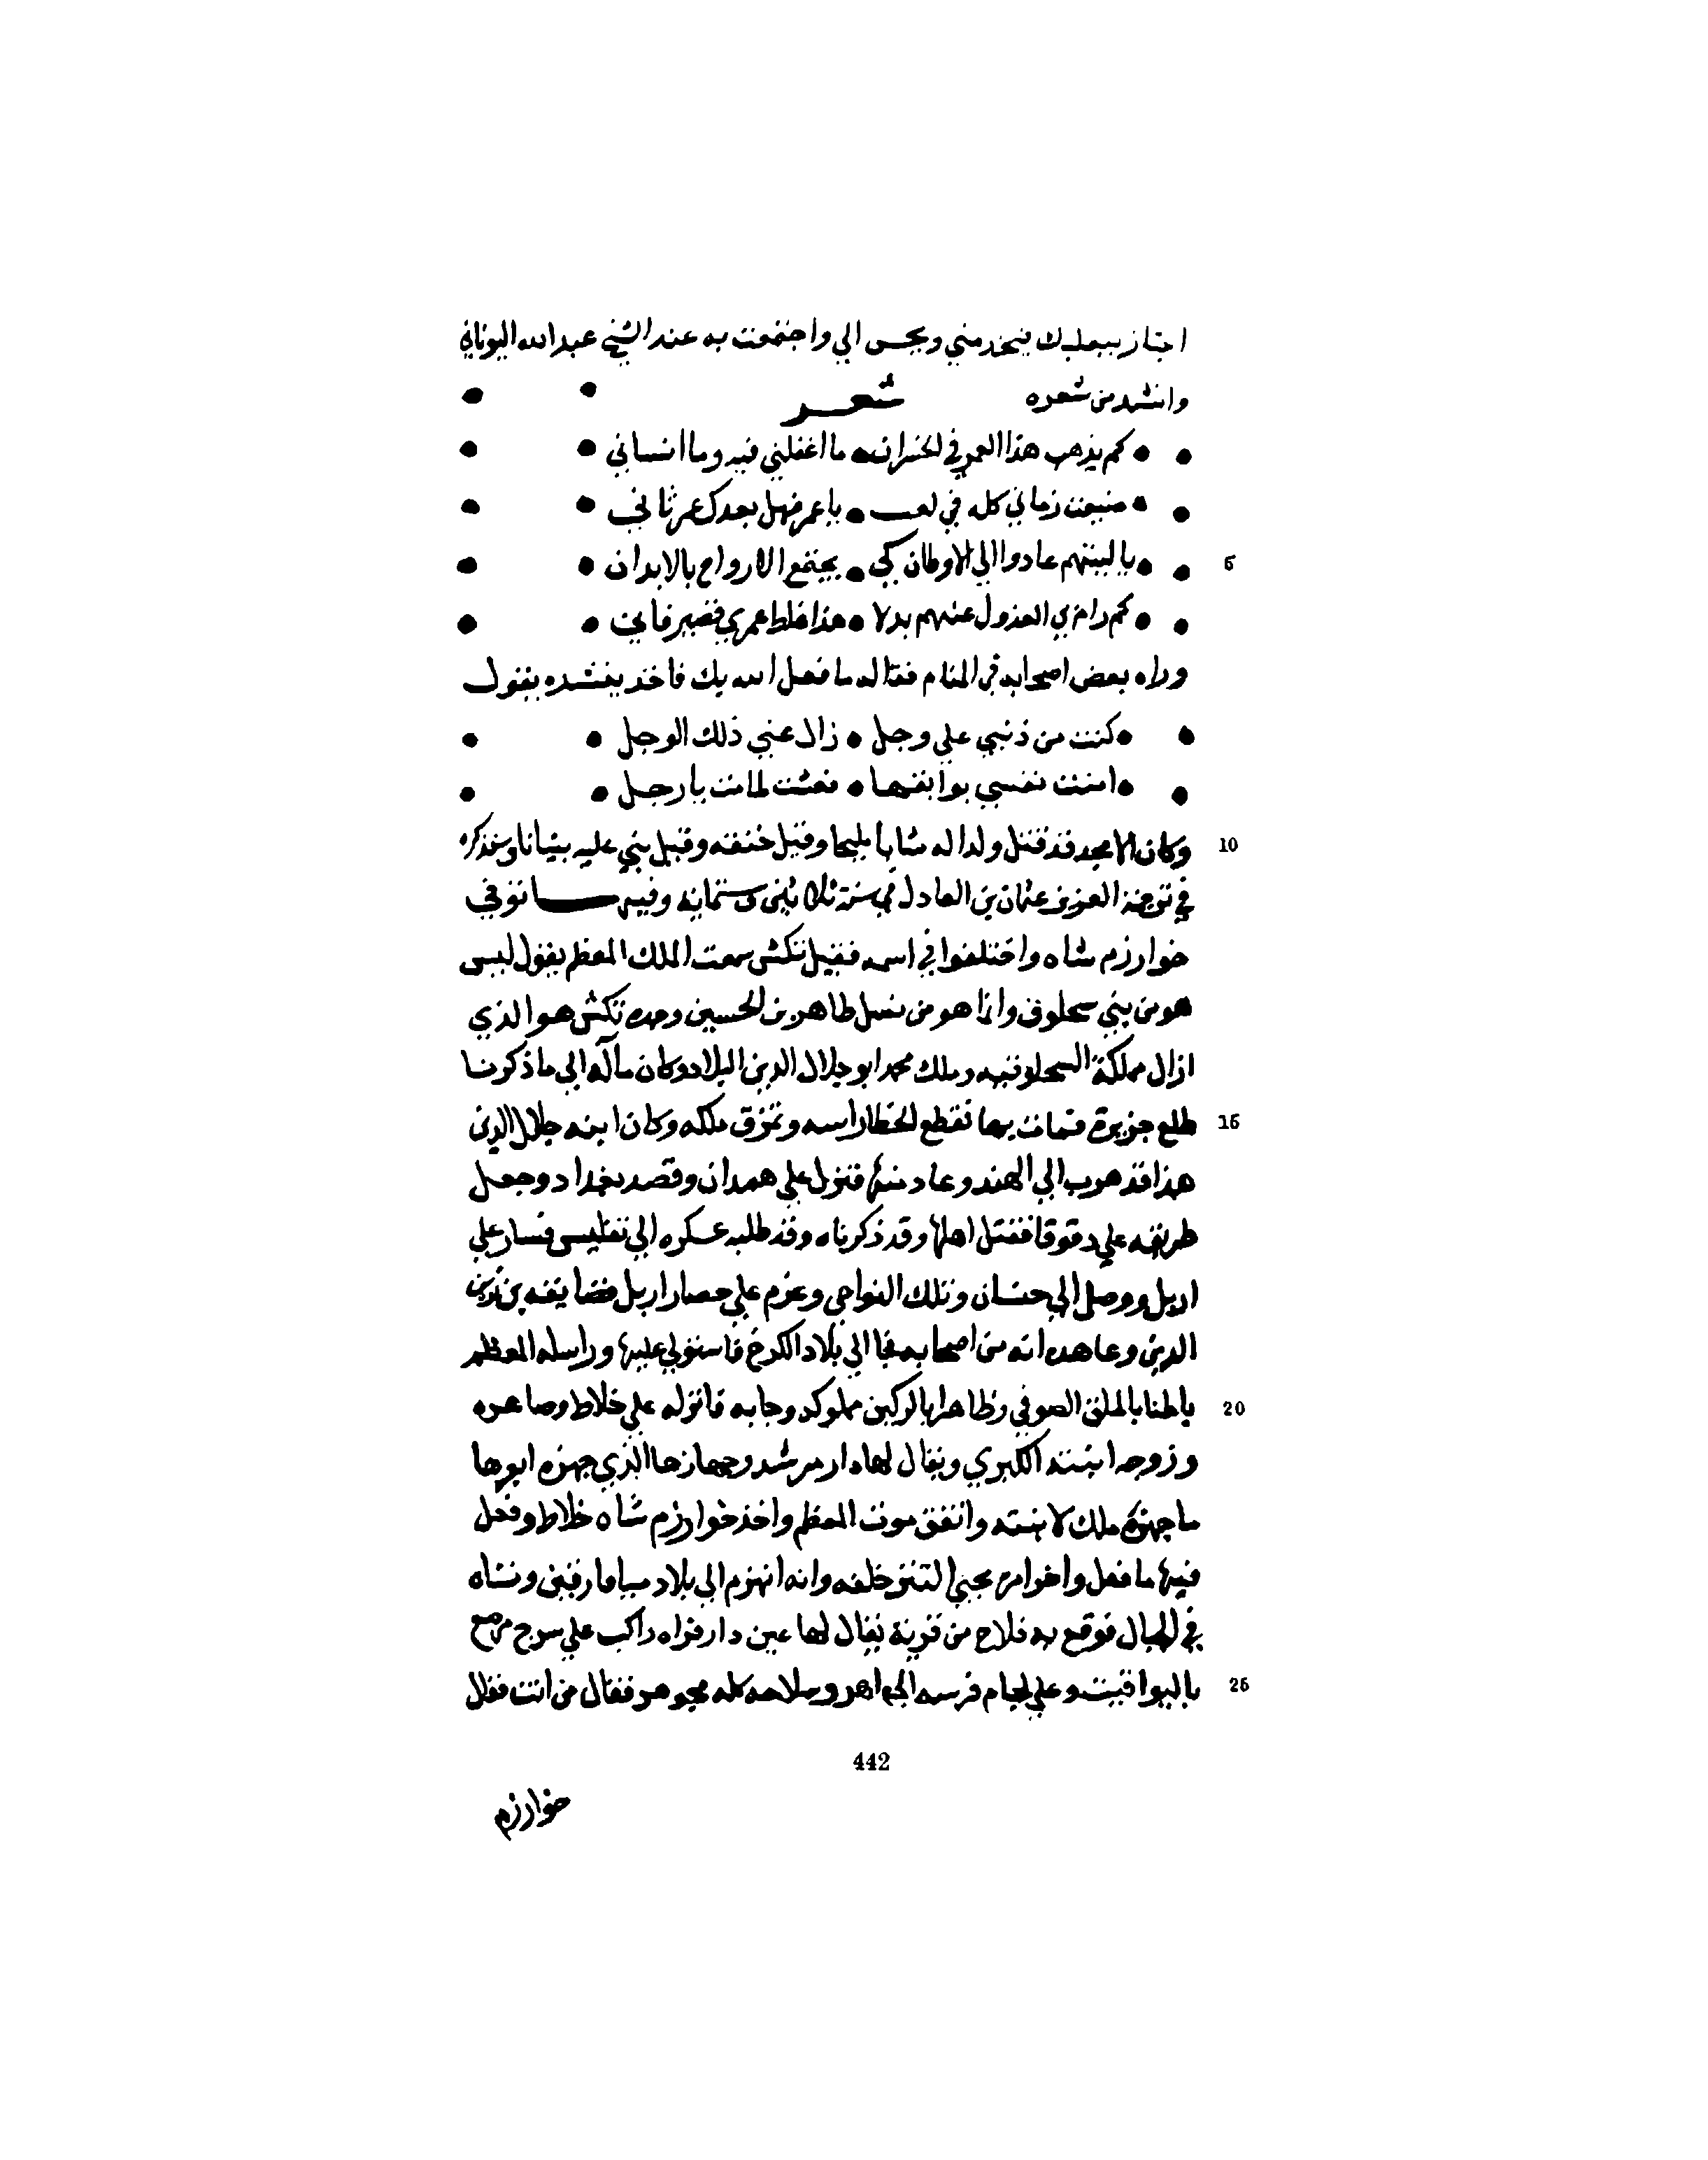 اجتاز ببعلبك يتخدمني ويجي الي واجتمعت به عند الشيخ عبد الله اليوناني
وانشد من شعره شعر
كم يذهب هذا العمر في الخسران • ما اغفلني فيه وما انساني
ضيعت زماني كله في لعب • يا عمر فهل بعدك عمر ثاني
5 يا ليتهم عادوا الي الاوطان كي • يجتمع الارواح بالابدان
كم رام بي العذول عنهم بدلا • هذا غلط عمري قصير فاني
وراه بعض اصحابه في المنام فقال له ما فعل الله بك فاخذ ينشده يقول
كنت من ذنبي علي وجل • زال عني ذلك الوجل
امنت نفسي بوايقها • فعشت لما مت يا رجل
10 وكان الامجد قد قتل ولدا له شابا مليحا وقيل خنقه وقيل بني عليه بنيانا وسنذكره
في ترجمة العزيز عثمان بن العادل في سنة ثلاثين وستمائة وفيها توفي
خوارزم شاه واختلفوا في اسمه فقيل تكش سمعت الملك المعظم يقول ليس
هو من بني سلجوق وانما هو من نسل طاهر بن الحسين وجده تكش هو الذي
ازال مملكة السلجوقيه وملك محمد ابو جلال الدين البلاد وكان مآله الي ما ذكرنا
15 طلع جزيرة فمات بها فقطع الخطا راسه وتمزق ملكه وكان ابنه جلال الدين
هذا قد هرب الي الهند وعاد منها فنزل علي همدان وقصد بغداد وجعل
طريقه علي دقوقا فقتل اهلها وقد ذكرناه وقد طلبه عسكره الي تفليس فسار علي
اربل ووصل الي حسان وتلك النواحي وعزم علي حصار اربل فضايقه بن زين
الدين وعاهده انه من اصحابه فجا الي بلاد الكرخ فاستولي عليها وراسله المعظم
20 باطنا بالملق الصوفي وظاهرا بالركين مملوكه وجا به فانزله علي خلاط وصاهره
وزوجه ابنته الكبري ويقال لها دار مرشد وجهازها الذي جهزه ابوها
ما جهزه ملك لابنته واتفق موت المعظم واخذ خوارزم شاه خلاط وفعل
فيها ما فعل واخر امره مجي التتر خلفه وانه انهزم الي بلاد ميافارقين وتاه
في الجبال فوقع به فلاح من قرية يقال لها عين دار فراه راكب علي سرج مرصع
25 باليواقيت وعلي لجام فرسه الجواهر وسلاحه كله مجوهر فقال من انت فقال
442
خوارزم